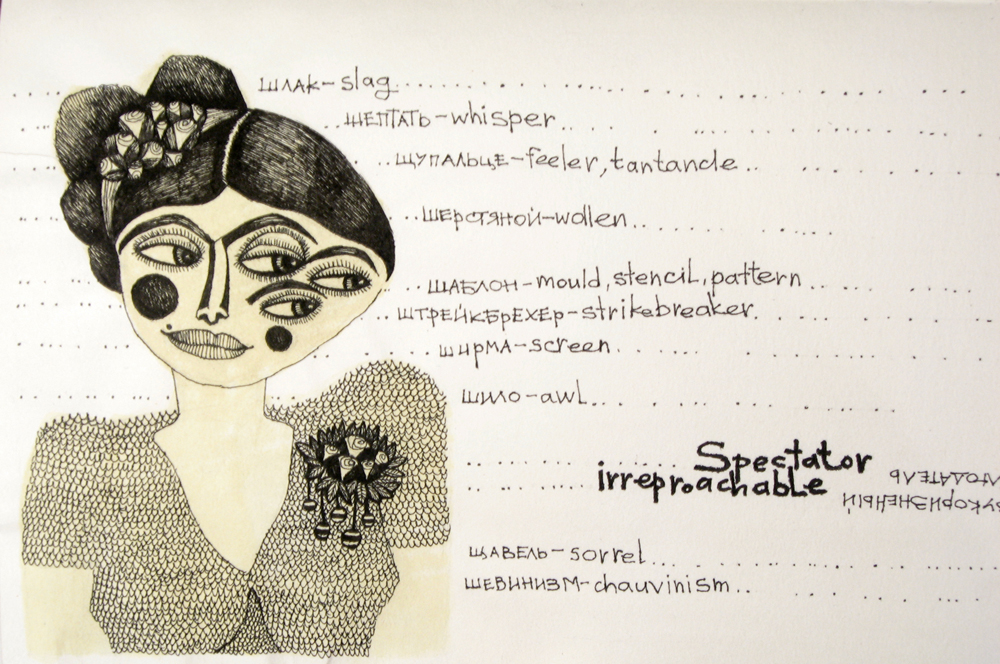 шлак-slag
шептать-whisper
щупальце-feeler, tantancle
шерстяной-wollen
шаблон-mould, stencil, pattern
штрейкбрехер-strikebreaker
ширма-screen
шило-awl
Spectator
irreproachable
щавель-sorrel
шевинизм-chauvinism